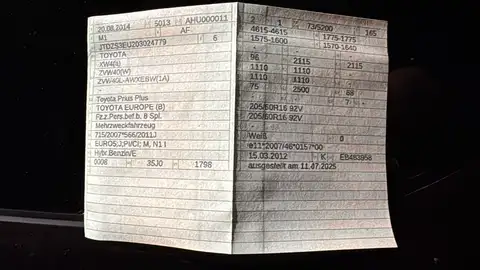 20.08.2014 5013 AHU000011
M1 AF
JTDZS3EU203024779 6
TOYOTA
XW4(a)
ZVW40(W)
ZVW40L-AWXEBW(1A)
-
Toyota Prius Plus
TOYOTA EUROPE (B)
Fz.z.Pers.bef.b. 8 Spl.
Mehrzweckfahrzeug
715/2007*566/2011J
EURO5;J;PI/CI; M, N1 I
Hybr.Benzin/E
0008 35J0 1798
2 1 73/5200 165
4615-4615 1775-1775
1575-1600 1570-1640
96 2115
1110 1110
1110 1110
75 2500 68
- 7 -
205/60R16 92V
205/60R16 92V
-
Weiß 0
e11*2007/46*0157*00
15.03.2012 K EB483958
ausgestellt am 11.47.2025